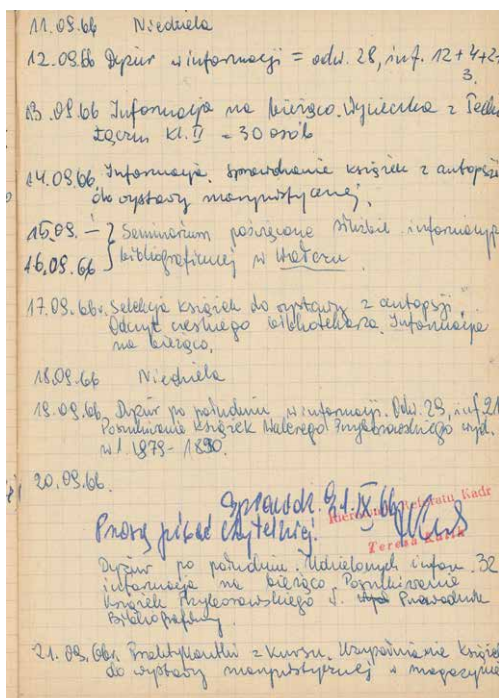 11.09.66 Niedziela
12.09.66 Dyżur w informacji = odw. 28, inf. 12+4+2+
3.
13.09.66 Informacja na bieżąco. Wycieczka z Techn.
Łączn. Kl. II = 30 osób
14.09.66. Informacja. Sprawdzanie książek z autopsji
do wystawy marynistycznej.
15.09. – Seminarium poświęcone służbie informacyj.
16.09.66 bibliograficznej w Wałczu.
17.09.66r. Selekcja książek do wystawy z autopsji.
Odczyt czeskiego bibliotekarza. Informacja
na bieżąco.
18.09.66 Niedziela
19.09.66. Dyżur po południu w informacji. Odw. 29, inf. 21
Poszukiwanie książek Walerego Przyborowskiego wyd.
w l. 1879-1890.
20.09.66.
Sprawdz. 21.IX.66
Kierownik Referatu Kadr
Proszę pisać czytelniej!
Teresa
Dyżur po południu. Udzielonych inform. 32
informacja na bieżąco. Poszukiwanie
książek Przyborowskiego Przewodnik
Bibliograficzny.
21.09.66r. Praktykantki z Kursu. Uzupełnianie książek
do wystawy marynistycznej w magazynie